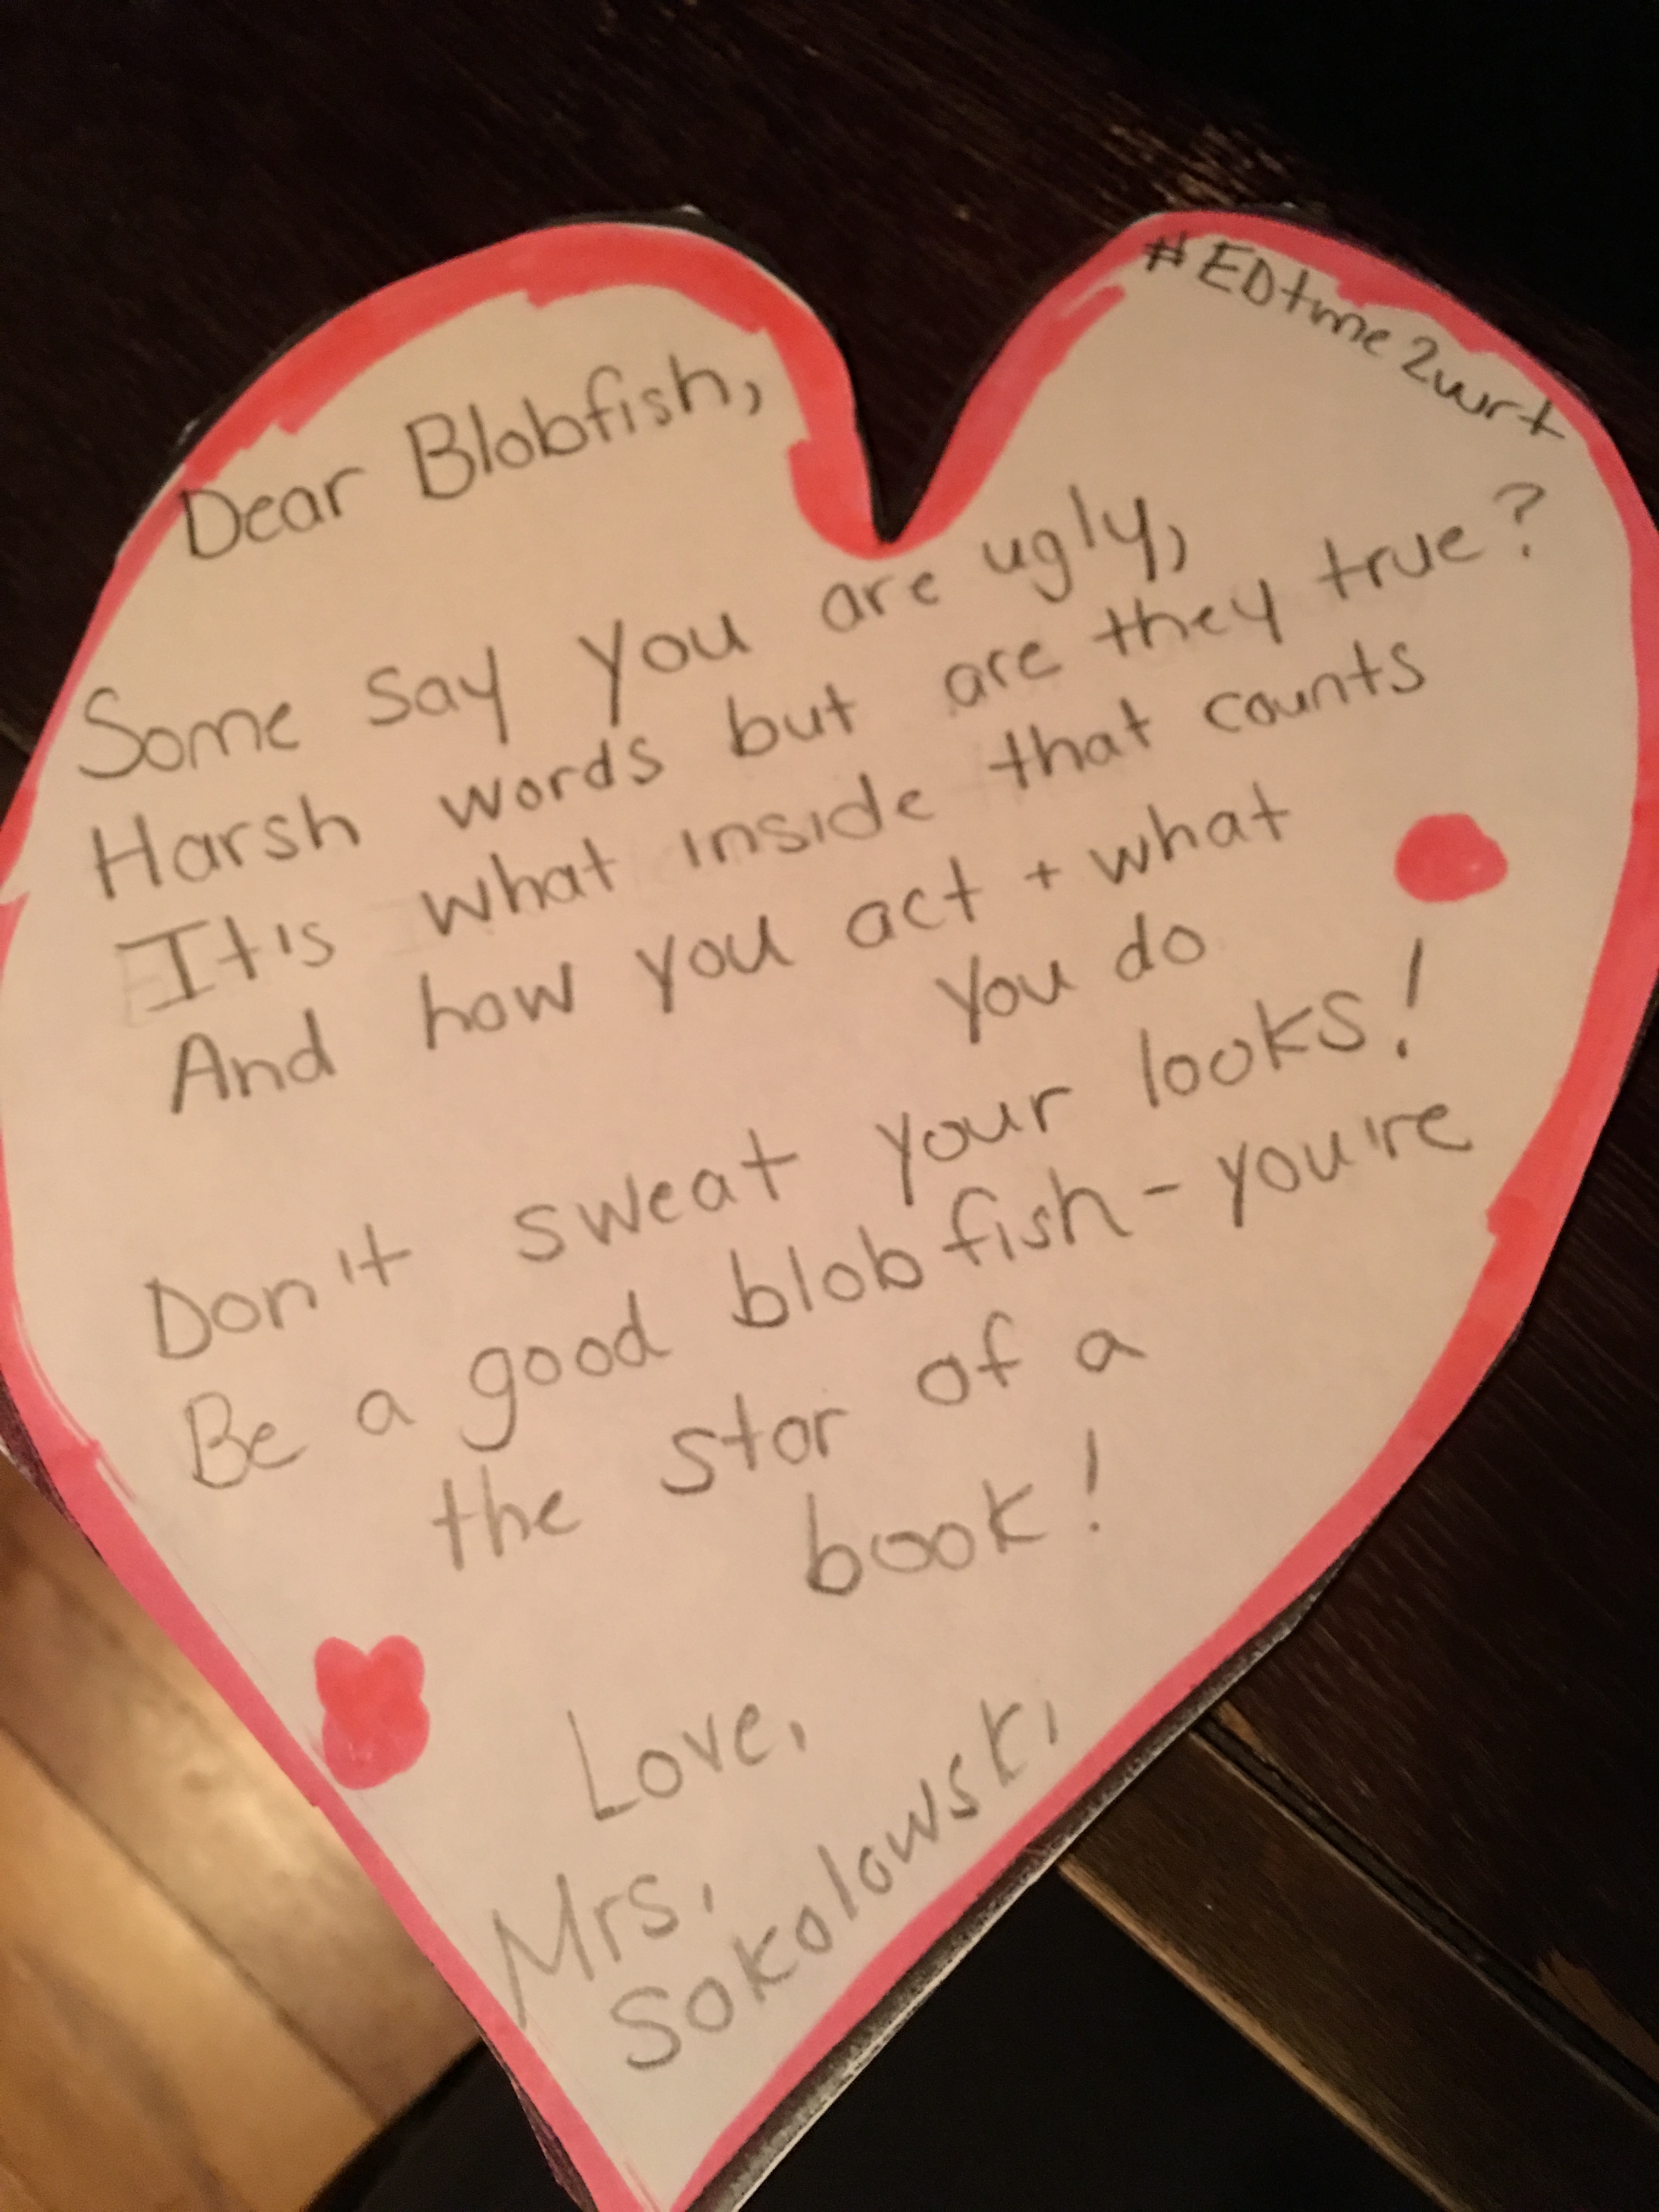 #EDtme2wrt
Dear Blobfish,
Some say you are ugly,
Harsh words but are they true?
It's what inside that counts
And how you act + what
you do
Don't sweat your looks!
Be a good blobfish - you're
the star of a
book!
Love,
Mrs.
Sokolowski